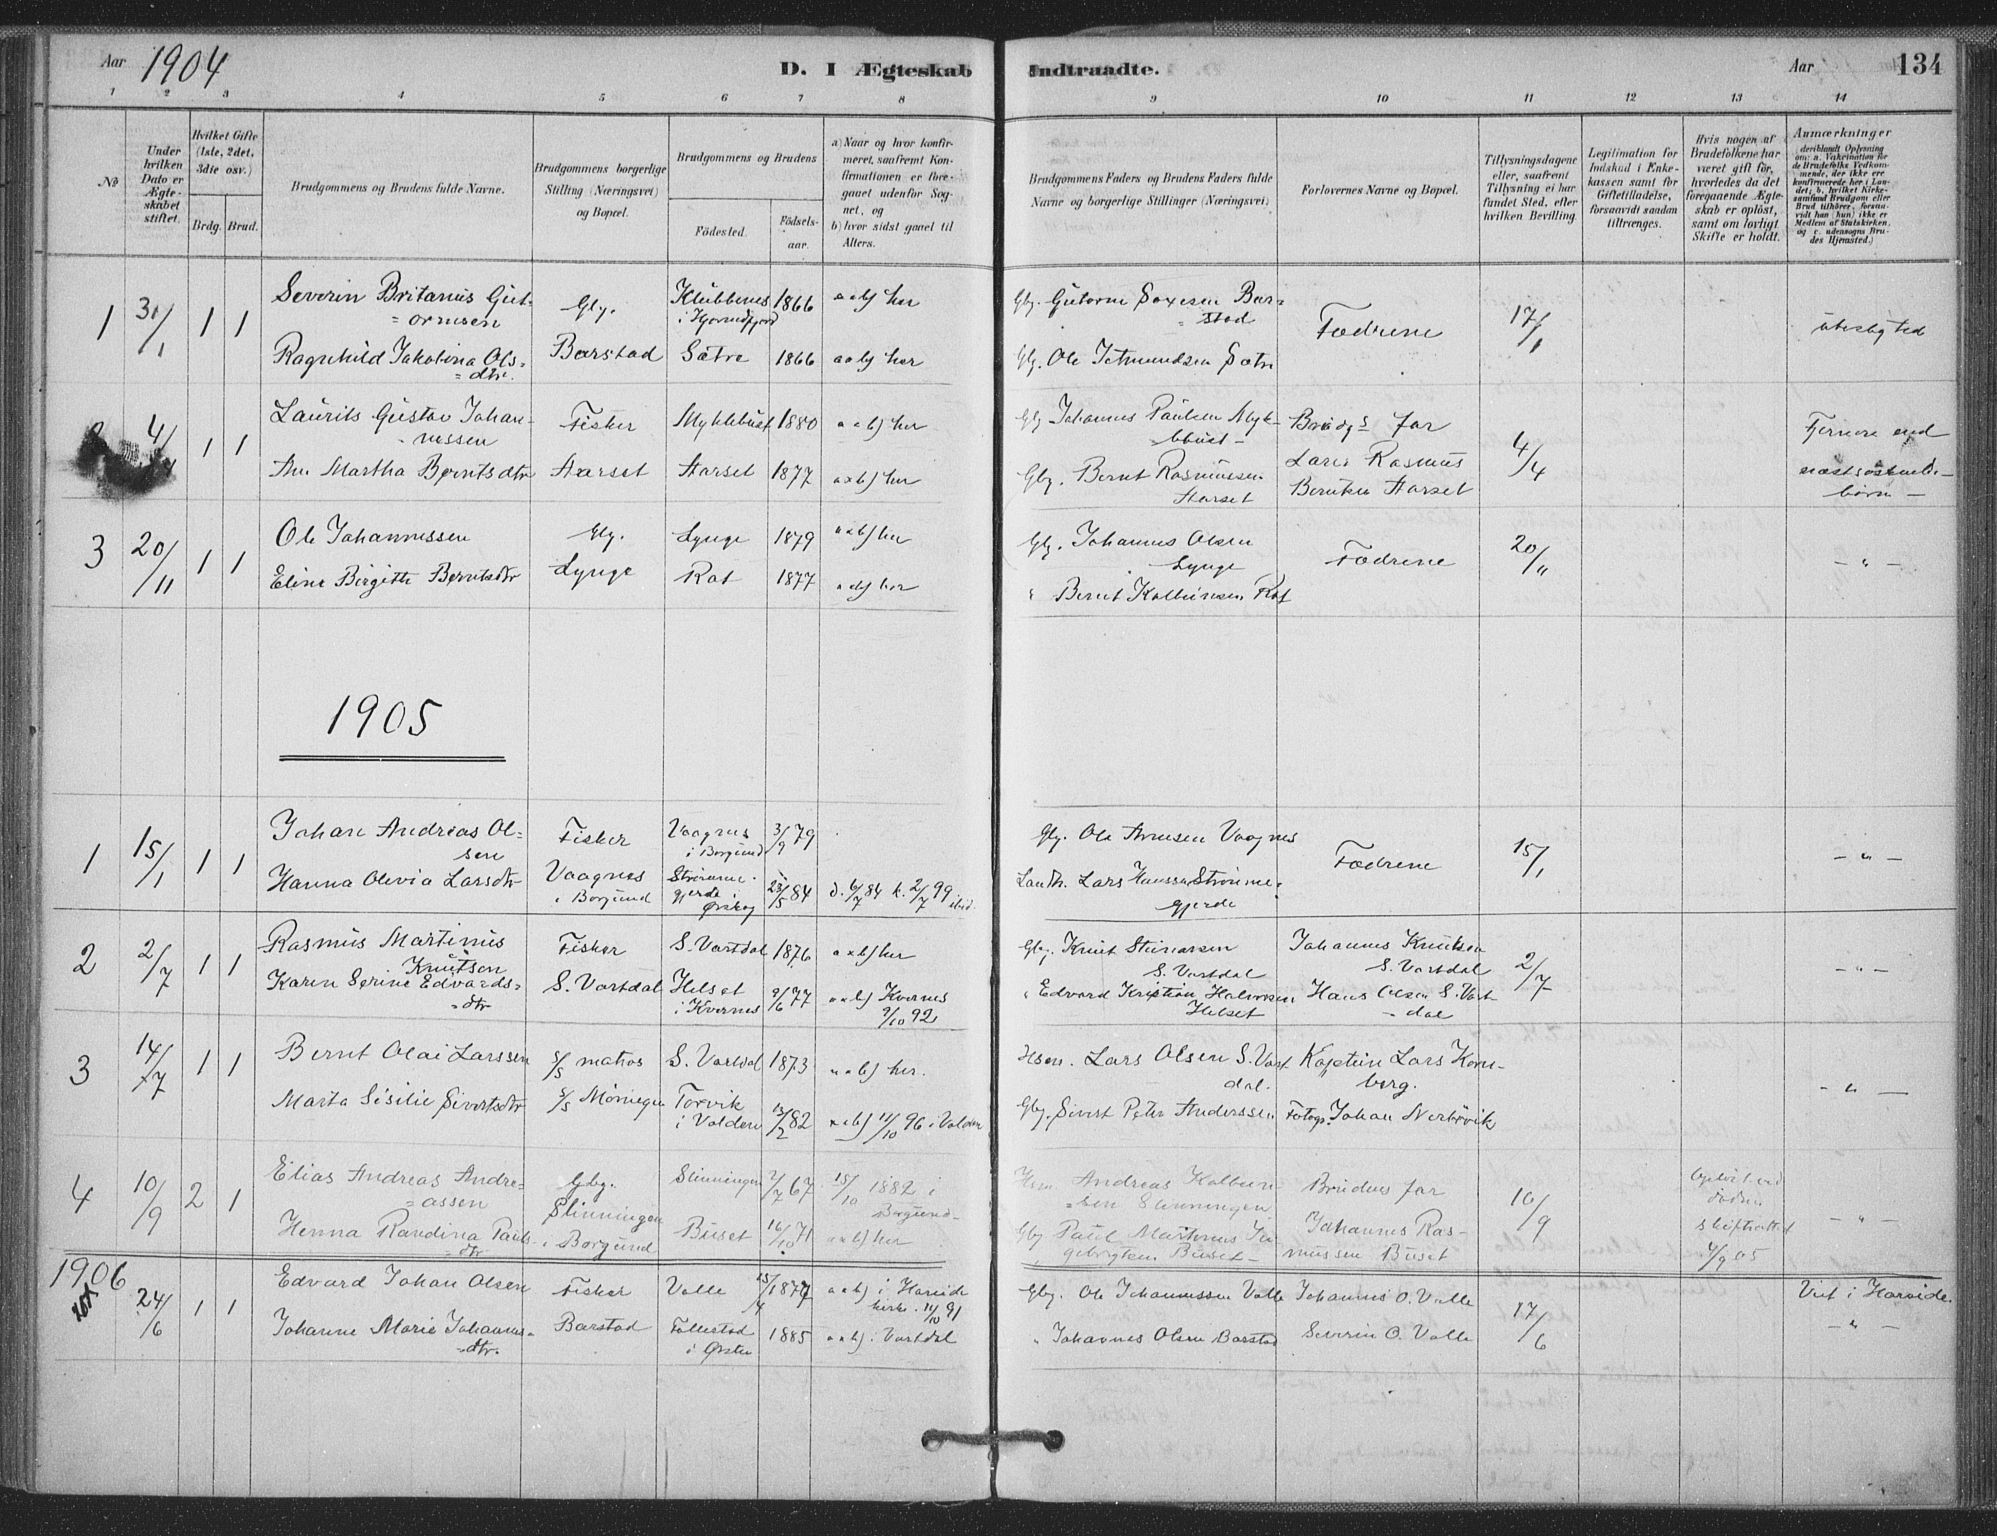 Aar 1904
D. I Ægteskab Indtraadte.
Aar 134
1 2 3 4 5 6 7 8 9 10 11 12 13 14
No
Under hvilken Dato er Ægteskabet stiftet.
Hvilket Gifte (1ste, 2det, 3die osv.)
Brdg. Brud.
Brudgommens og Brudens fulde Navne.
Brudgommens borgerlige Stilling (Næringsvei) og Bopæl.
Brudgommens og Brudens
Födested.
Födselsaar.
a) Naar og hvor konfirmeret, saafremt Konfirmationen er foregaaet udenfor Sognet, og
b) hvor sidst gaael til Alters.
Brudgommens Faders og Brudens Faders fulde Navne og borgerlige Stillinger (Næringsvei)
Forlovernes Navne og Bopæl.
Tillysningsdagene eller, saafremt Tillysning ei har fundet Sted, efter hvilken Bevilling.
Legitimation for Indskud i Enkekassen samt for Giftetilladelse, forsaavidt saadan tiltrænges.
Hvis nogen af Brudefolkene har været gift för, hvorledes da det foregaaende Ægteskab er oplöst, samt om lovligt Skifte er holdt.
Anmærkninger
(deriblandt Oplysning om: a. Vakcination for de Brudefolks Vedkommende, der ikke ere konfirmerede her i Landet; b. hvilket Kirkesamfund Brudgom eller Brud tilhörer, forsaavidt han (hun) ikke er Medlem af Statskirken, og c. udensogns Brudes Hjemsted.)
1 31/1 1 1 Severin Britanus Gutormsen Gbr. Klubbenes i Hjorundfjord 1866 a o b) her Gbr. Gutorm Saxesen Barstad Fædrene 17/1 ubeslgted
Ragnhild Jakobina Olsdtr. Barstad Sætre 1866 a o b) her Gbr. Ole Ietmundsen Sætre
4/4 1 1 Laurits Gustav Johannessen Fisker Myklebust 1880 a o b) her Gbr Johannes Paulsen Myklebust Brudgs far 4/4 Fjernere end
Ane Martha Berntsdtr Aarset Aarset 1877 a o b) her Gbr. Bernt Rasmussen Aarset Lars Rasmus Berntsen Aarset næstsøskendebørn
3 20/11 1 1 Ole Johannessen Gbr. Lynge 1879 a o b) her Gbr. Johannes Olsen Lynge Fædrene 20/11 — " —
Eline Birgitte Berntsdtr Lynge Rot 1877 a o b) her " Bernt Kolbeinsen Rot
1905
1 15/1 1 1 Johan Andreas Olsen Fisker Vaagnes i Borgund 3/9 79 Gbr. Ole Arnesen Vaagnes Fædrene 15/1 — " —
Hanna Olevia Larsdtr Vaagnes i Borgund Strømmegjerde i Ørskog 23/5 84 d. 6/7 84 k. 2/7 99 ibid. Landh. Lars Hanssen Strømmegjerde
2 2/7 1 1 Rasmus Martinus Knutsen Fisker S. Vartdal 1876 a o b) her Gbr. Knut Steinarsen S. Vartdal Johannes Knutsen S. Vartdal 2/7 — " —
Karen Serine Edvardsdtr S. Vartdal Helset i Kvernes 9/6 77 a o b) Kvernes 9/10 92 " Edvard Kristian Halvorsen Helset Hans Olsen S. Vartdal
3 14/7 1 1 Bernt Olai Larssen S/S matros S. Vartdal 1873 a o b) her. Hsm. Lars Olsen S. Vartdal. Kaptein Lars Kornberg. — " —
Marta Sisilie Sivertsdtr S/S Mørningen Torvik i Volden 13/2 82 a o b) 11/10 96 i Volden Gbr. Sivert Peter Anderssen Fotogr. Johan Nerbøvik
4 10/9 2 1 Elias Andreas Andreassen Gbr. Slinningen 2/7 67 15/10 1882 i Borgund Hsm Andreas Kolbensen Slinningen Brudens far 10/9 Opløst ved døden — " —
Henna Randina Paulsdtr Slinningen i Borgund Buset 16/10 71 a o b) her Gbr Paul Martinus Ingebrigtsen Buset Johannes Rasmussen Buset skifteattest 4/9 05
1906
24/6 1 1 Edvard Johan Olsen Fisker Valle 15/4 1877 a o b) i Hareide kirke 11/10 91 Gbr. Ole Johannessen Valle Johannes O. Valle 17/6 Viet i Hareide.
Johanne Marie Johannesdtr. Barstad Follestad i Ørsten 1885 a o b) i Vartdal " Johannes Olsen Barstad Severin O. Valle — " —